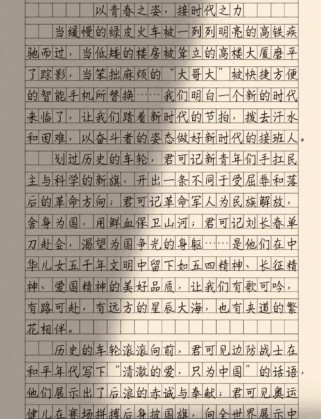 以青春之姿，接时代之力
当缓慢的绿皮火车被一列列明亮的高铁疾
驰而过，当低矮的楼房被耸立的高楼大厦磨平
了踪影，当笨拙麻烦的“大哥大”被快捷方便
的智能手机所替换……我们明白一个新的时代
来临了，让我们踏着新时代的节拍，拨去汗水
和困难，以奋斗者的姿态做好新时代的接班人。
划过历史的车轮，君可记新青年们手扛民
主与科学的新旗，开出一条不同于受屈辱和落
后的革命方向；君可记革命军人为民族解放，
舍身为国，用鲜血保卫山河；君可记刘长春单
刀赴会，渴望为国争光的身躯……是他们在中
华儿女五千年文明中留下如五四精神、长征精
神、爱国精神的美好品质，让我们有歌可吟，
有路可赴，有远方的星辰大海，也有夹道的繁
花相伴。
历史的车轮滚滚向前，君可见边防战士在
和平年代写下“清澈的爱，只为中国”的话语，
他们展示出了后浪的赤诚与奉献；君可见奥运
健儿在赛场拼搏后身披国旗，向全世界展示中